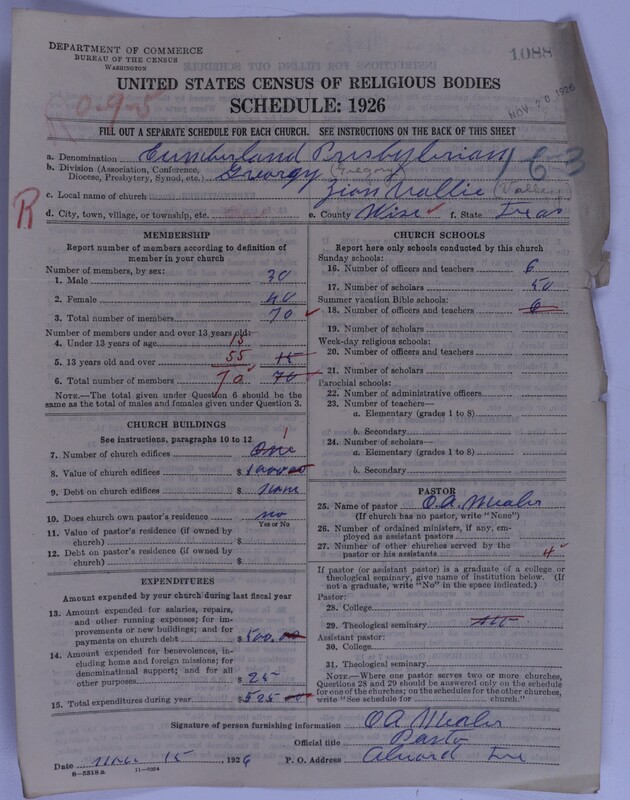 DEPARTMENT OF COMMERCE
BUREAU OF THE CENSUS
WASHINGTON
1088
NOV 20 1926
UNITED STATES CENSUS OF RELIGIOUS BODIES
SCHEDULE: 1926
0-9-5
FILL OUT A SEPARATE SCHEDULE FOR EACH CHURCH. SEE INSTRUCTIONS ON THE BACK OF THIS SHEET
163
a. Denomination Cumberland Presbyterian
b. Division (Association, Conference, Diocese, Presbytery, Synod, etc.) Greorgy (Gregory)
c. Local name of church Zion Vallie (Valley)
R
d. City, town, village, or township, etc. e. County Wise f. State Texas
MEMBERSHIP
Report number of members according to definition of member in your church
Number of members, by sex:
1. Male 30
2. Female 40
3. Total number of members 70
Number of members under and over 13 years old:
4. Under 13 years of age 15
5. 13 years old and over 55 15
6. Total number of members 70 70
NOTE.—The total given under Question 6 should be the same as the total of males and females given under Question 3.
CHURCH BUILDINGS
See instructions, paragraphs 10 to 12
7. Number of church edifices One 1
8. Value of church edifices $ 1000 00
9. Debt on church edifices $ None
10. Does church own pastor's residence no
Yes or No
11. Value of pastor's residence (if owned by church) $
12. Debt on pastor's residence (if owned by church) $
EXPENDITURES
Amount expended by your church during last fiscal year
13. Amount expended for salaries, repairs, and other running expenses; for improvements or new buildings; and for payments on church debt $ 500.00
14. Amount expended for benevolences, including home and foreign missions; for denominational support; and for all other purposes $ 25
15. Total expenditures during year $ 525 00
CHURCH SCHOOLS
Report here only schools conducted by this church
Sunday schools:
16. Number of officers and teachers 6
17. Number of scholars 50
Summer vacation Bible schools:
18. Number of officers and teachers 6
19. Number of scholars
Week-day religious schools:
20. Number of officers and teachers
21. Number of scholars
Parochial schools:
22. Number of administrative officers
23. Number of teachers—
a. Elementary (grades 1 to 8)
b. Secondary
24. Number of scholars—
a. Elementary (grades 1 to 8)
b. Secondary
PASTOR
25. Name of pastor O.A.
(If church has no pastor, write "None")
26. Number of ordained ministers, if any, employed as assistant pastors
27. Number of other churches served by the pastor or his assistants 4
If pastor (or assistant pastor) is a graduate of a college or theological seminary, give name of institution below. (If not a graduate, write "No" in the space indicated.)
Pastor:
28. College
29. Theological seminary
Assistant pastor:
30. College
31. Theological seminary
NOTE.—Where one pastor serves two or more churches, Questions 28 and 29 should be answered only on the schedule for one of the churches; on the schedules for the other churches, write "See schedule for church."
Signature of person furnishing information O.A.
Official title Pasto
Date Nov 15 1926 P. O. Address Alvord Tex
8-5318a 11-9224